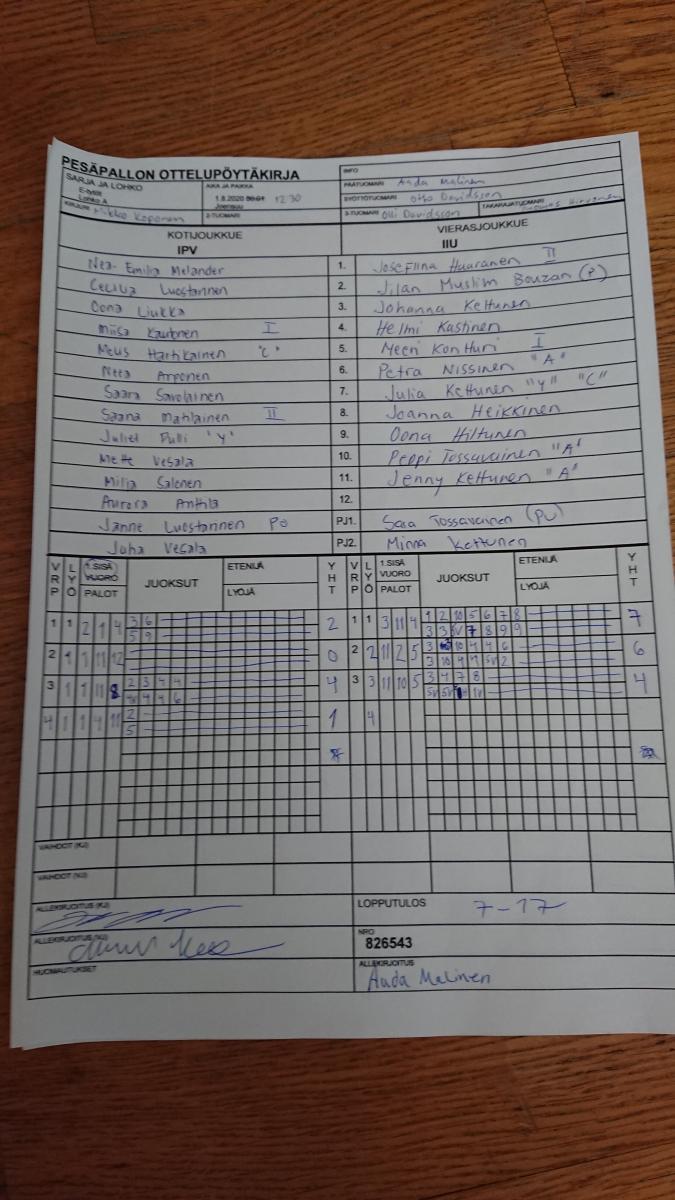 PESÄPALLON OTTELUPÖYTÄKIRJA
INFO
SARJA JA LOHKO
E-tytöt
Lohko A
AIKA JA PAIKKA
1.8.2020 12.30
Joensuu
PÄÄTUOMARI Anda Malinen
SYÖTTÖTUOMARI Otto Davidsson
KIRJURI Mikko Koponen
2-TUOMARI
3-TUOMARI Olli Davidsson
TAKARAJATUOMARI
KOTIJOUKKUE
IPV
VIERASJOUKKUE
IIU
Nea-Emilia Melander 1. Josefiina Huuranen II
Cecilia Luostarinen 2. Jilan Muslim Bouzan (P)
Oona Liukka 3. Johanna Kettunen
Miisa Kautonen I 4. Helmi Kastinen
Meus Hartikainen "C" 5. Meeri Kontturi I
Neea Arponen 6. Petra Nissinen "A"
Saara Savolainen 7. Julia Kettunen "Y" "C"
Saana Mahlainen II 8. Joanna Heikkinen
Juliet Pulli "Y" 9. Oona Hiltunen
Mette Vesala 10. Peppi Tossavainen "A"
Milja Salonen 11. Jenny Kettunen "A"
Aurora Anttila 12.
Janne Luostarinen PJ1. Sara Tossavainen (PU)
Juha Vesala PJ2. Minna Kettunen
VRP LYÖ 1.SISÄ VUORO PALOT JUOKSUT ETENIJÄ LYÖJÄ YHT VRP LYÖ 1.SISÄ VUORO PALOT JUOKSUT ETENIJÄ LYÖJÄ YHT
1 1 2 1 4 3 6 2 1 1 3 11 4 1 2 10 5 6 7 8 7
5 9
2 1 1 11 12 0 2 2 11 2 5 6
3 1 1 11 8 2 3 4 4 3 3 11 10 5 3 4 7 8 4
4 1 1 4 11 2 1 4
5
VAIHDOT (KJ)
VAIHDOT (VJ)
ALLEKIRJOITUS (KJ)
LOPPUTULOS 7-17
ALLEKIRJOITUS (VJ)
NRO
826543
HUOMAUTUKSET
ALLEKIRJOITUS
Anda Malinen